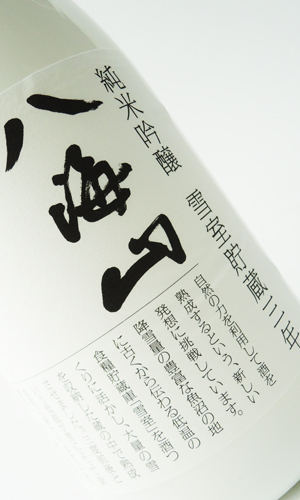 純米吟醸 雪室貯蔵三年
八海山
自然の力を利用して酒を
熟成するという、新しい
発想に挑戦しています。
降雪量の豊富な魚沼の地
に古くから伝わる低温の
食糧貯蔵庫「雪室」を酒つ
くりに活かし、大量の雪